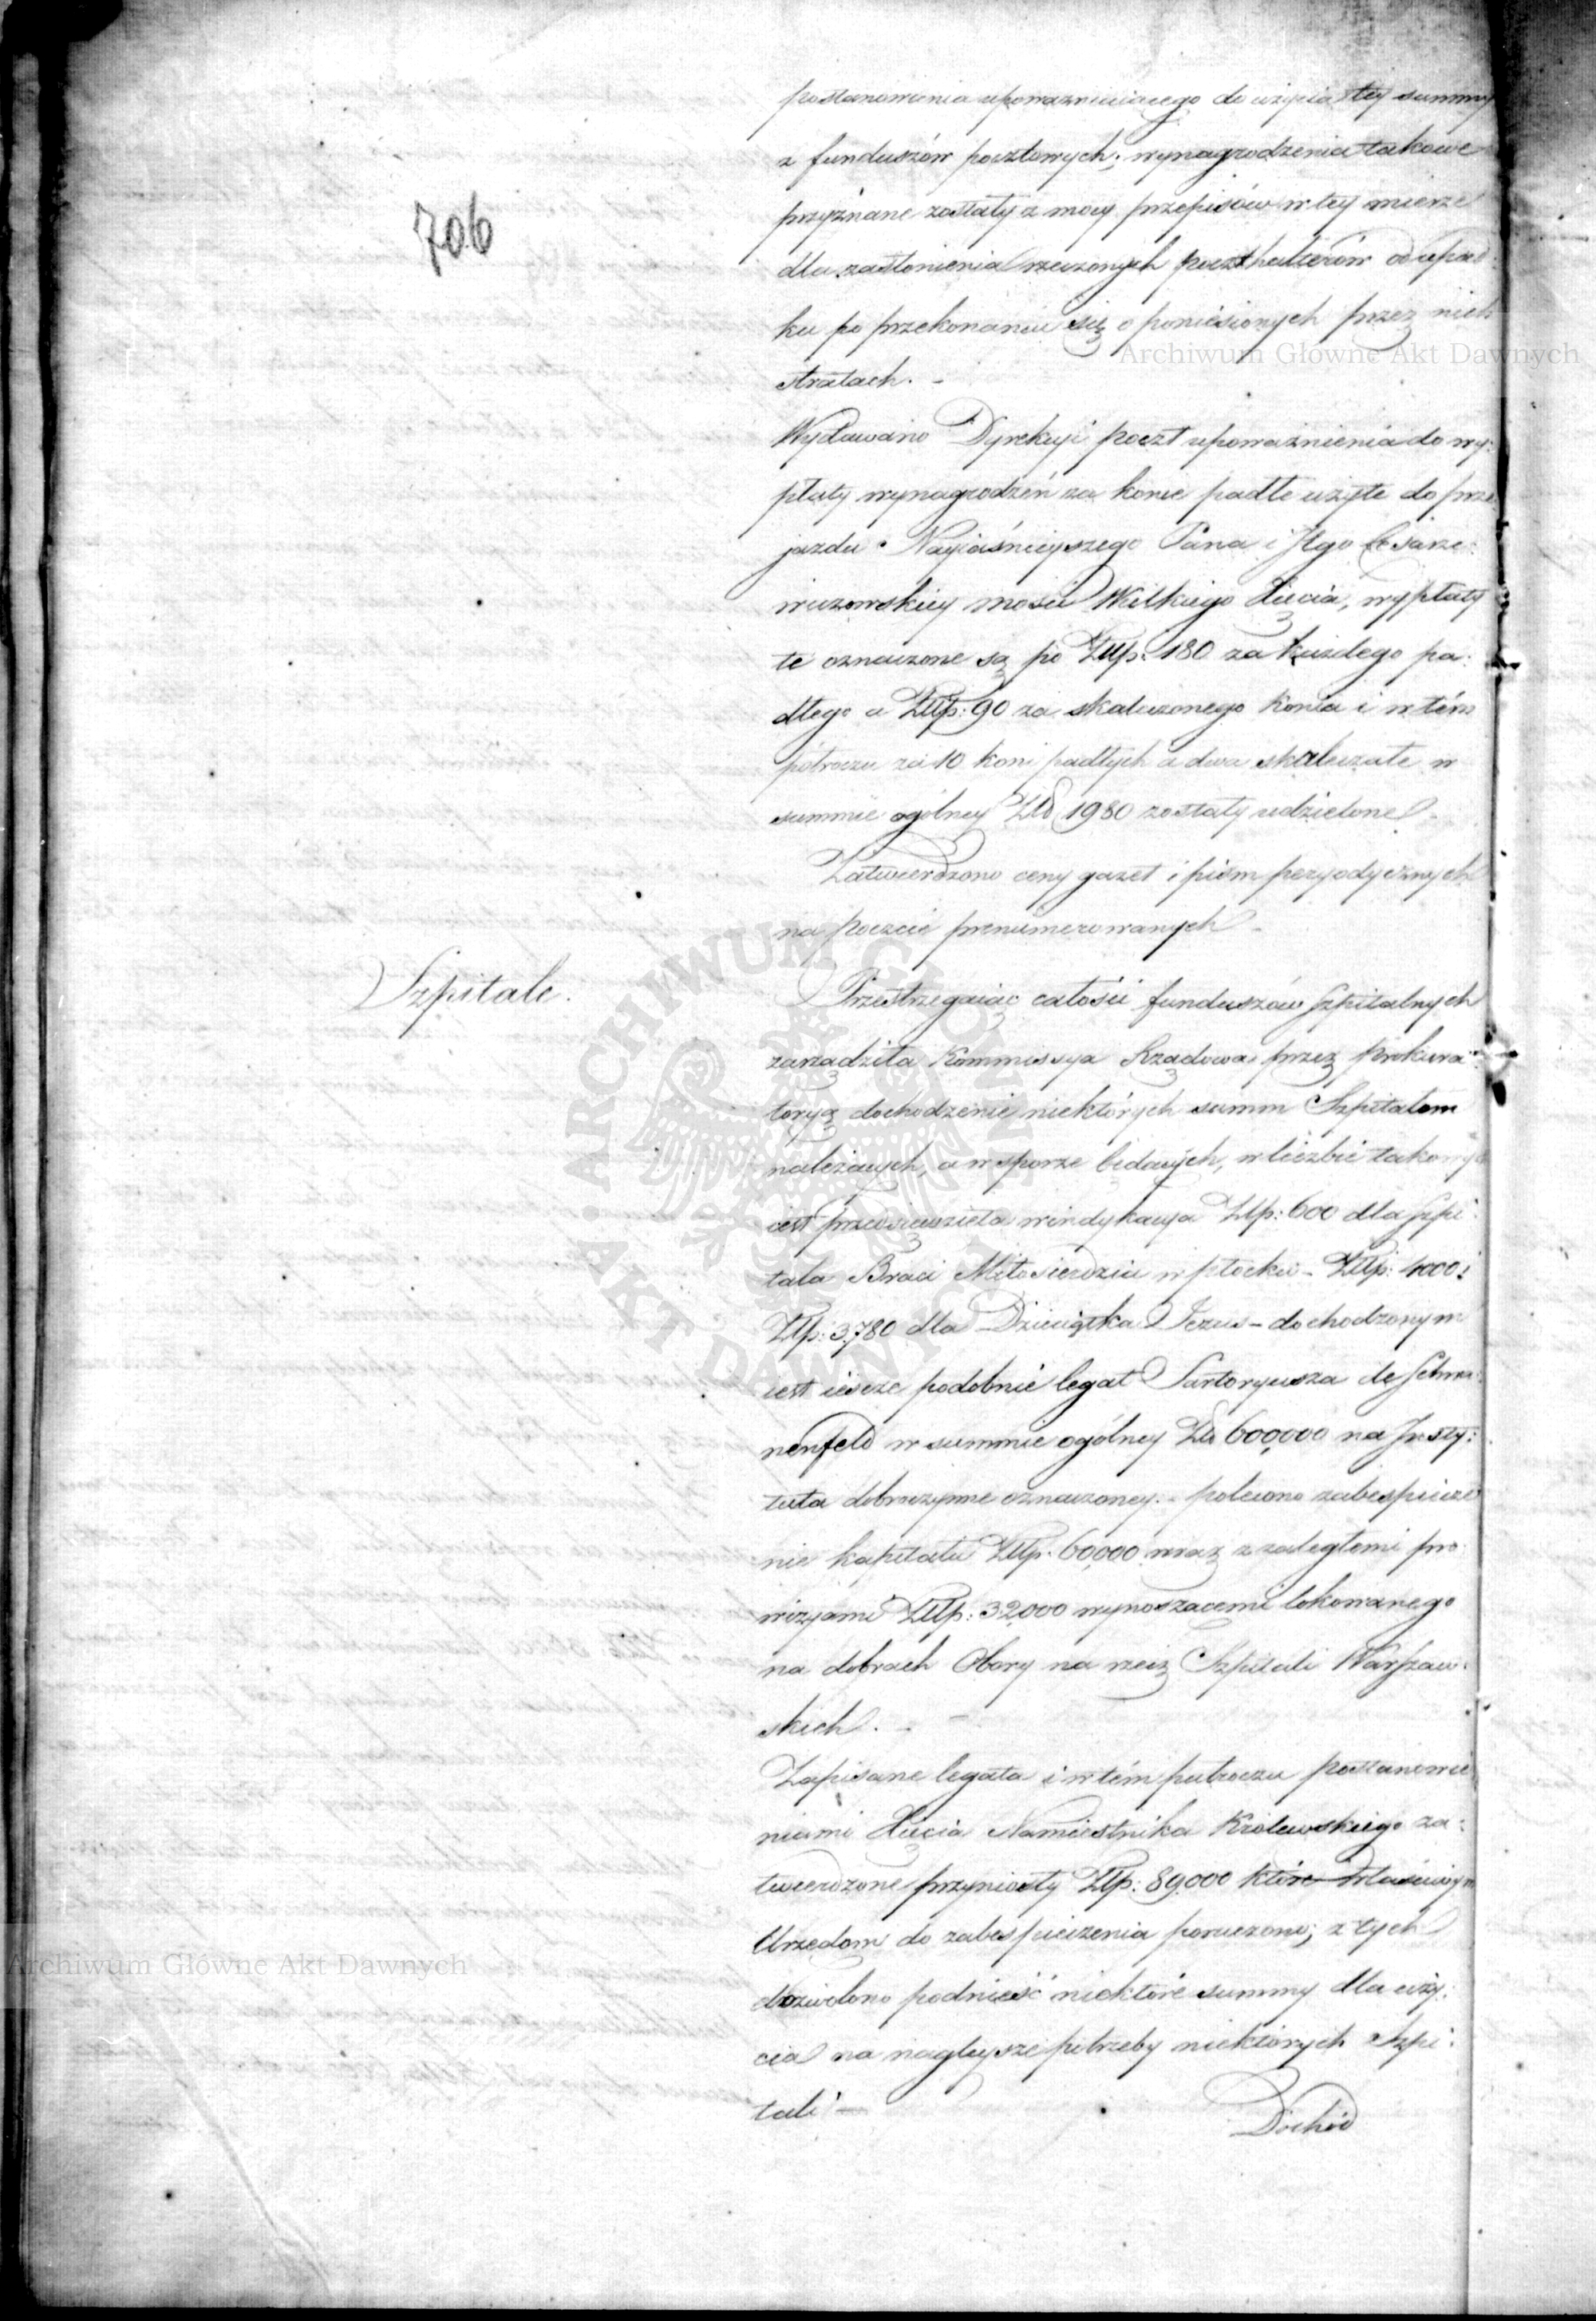 706
postanowienia upoważniaiącego do użycia tey summy
z funduszów pocztowych; wynagrodzenia takowe
przyznane zostały z mocy przepisów w tey mierze
dla zasłonienia rzeczonych poczthalterów od upad
ku po przekonaniu się o poniesionych przez nich
stratach. -
Wydawano Dyrekcyi poczt upoważnienia do wy:
płaty wynagrodzeń za konie padłe użyte do prze
jazdu Nayiaśnieyszego Pana i Jego Cesarze:
wiczowskiey mości Wielkiego Xięcia, wypłaty
te oznaczone są po Złłp: 180 za każdego pa:
dłego a Złłp: 90 za skaleczonego konia i w tém
półroczu za 10 koni padłych a dwa skaleczałe w
summie ogólney Złł 1980 zostały udzielone. -
Zatwierdzono ceny gazet i pism peryodycznych
na poczcie prenumerowanych -
Szpitale.
Przestrzegaiąc całości funduszów Szpitalnych
zarządziła Kommissya Rządowa przez prokura:
toryą dochodzenie niektórych summ Szpitalom
należących, a w sporze będących, w liczbie takowych
iest przedsięwzięta windykacya Złp: 600 dla Szpi:
tala Braci Miłosierdzia w płocku - Złłp: 4000 i
Złp: 3,780 dla Dzieciątka Jezus - dochodzonym
iest ieszcze podobnie legat Sartoryusza de Schwa:
nenfeld w summie ogólney Złł 600,000 na Insty:
tuta dobroczynne oznaczoney. - polecono zabespiecze
nie kapitału Złłp: 60,000 wraz z zaległemi pro
wizyami Złłp: 32,000 wynoszącemi lokowanego
na dobrach Obory na rzecz Szpitali Warszaw:
skich. -
Zapisane legata i w tém półroczu postanowie
niami Xięcia Namiestnika Królewskiego za:
twierdzone przyniosły Złłp: 89,000 które właściwym
Urzędom do zabespieczenia poruczono; z tych
dozwolono podnieść niektóre summy dla uży:
cia na nagleysze potrzeby niektórych Szpi:
tali -
Dochód
Archiwum Główne Akt Dawnych
Archiwum Główne Akt Dawnych
ARCHIWUM GŁÓWNE AKT DAWNYCH